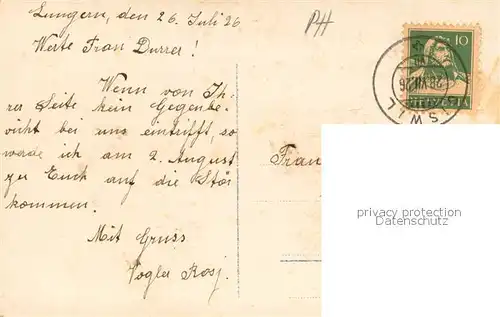 Lungern, den 26. Juli 26
PH
Werte Frau Durrer!
Wenn von Ih-
rer Seite kein Gegenbe-
richt bei uns eintrifft, so
werde ich am 2. August
zu Euch auf die Stör
kommen.
Mit Gruss
Vogler Rosj.
10
HELVETIA
26.VII.26
SWIL
Frau
privacy protection
Datenschutz